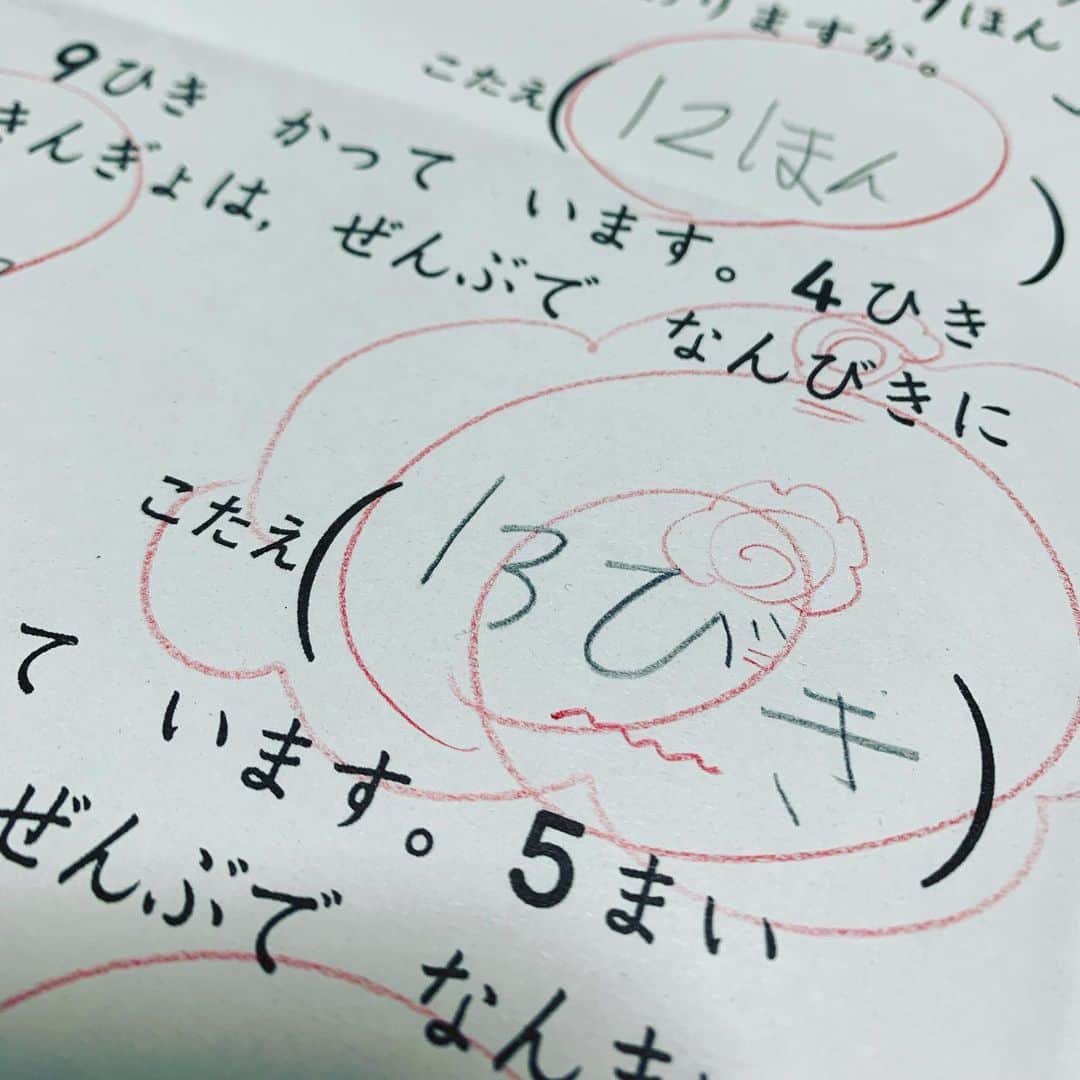 7ほん
りますか。
こたえ(12ほん)
9ひき かって います。4ひき
きんぎょは, ぜんぶで なんびきに
こたえ(13びき)
て います。5まい
ぜんぶで なんま